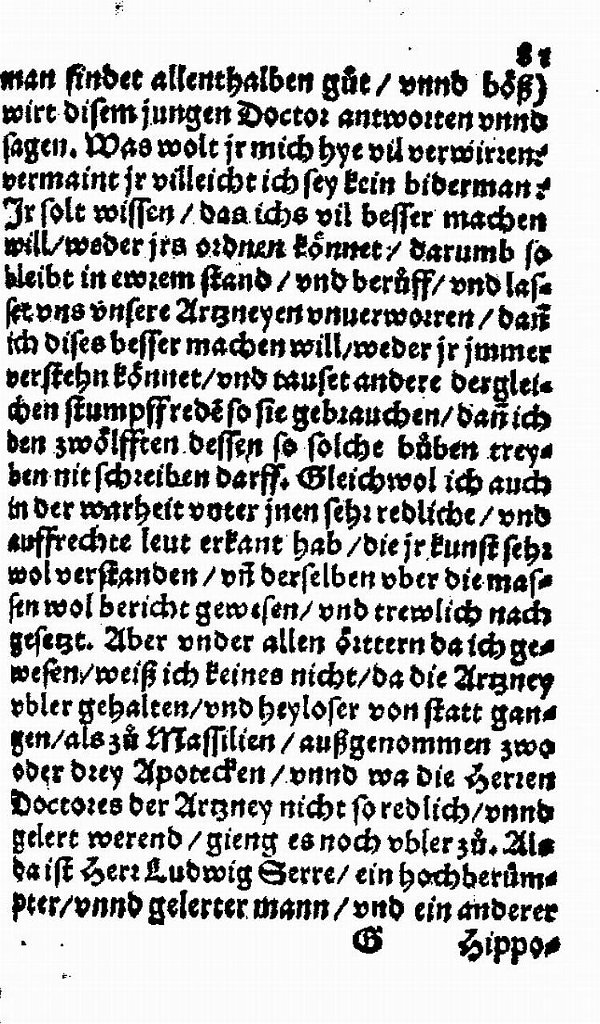 81
man findet allenthalben gůt / vnnd böß)
wirt disem jungen Doctor antworten vnnd
sagen. Was wolt jr mich hye vil verwirren:
vermaint jr villeicht ich sey kein biderman:
Jr solt wissen / das ichs vil besser machen
will/weder jrs ordnen könnet / darumb so
bleibt in ewrem stand / vnd berůff/ vnd las-
set vns vnsere Artzneyen vnuerworren / dañ
ich dises besser machen will/weder jr jmmer
verstehn könnet/vnd tauset andere derglei-
chen stumpffredẽ so sie gebrauchen/ dañ ich
den zwölfften dessen so solche bůben trey-
ben nit schreiben darff. Gleichwol ich auch
in der warheit vnter jnen sehr redliche / vnd
auffrechte leut erkant hab / die jr kunst sehr
wol verstanden / vñ derselben vber die mas-
sen wol bericht gewesen/ vnd trewlich nach
gesetzt. Aber vnder allen örttern da ich ge-
wesen/weiß ich keines nicht/da die Artzney
vbler gehalten/vnd heyloser von statt gan-
gen/als zů Massilien / außgenommen zwo
oder drey Apotecken / vnnd wa die Herren
Doctores der Artzney nicht so redlich/vnnd
gelert werend / gieng es noch vbler zů. Al-
da ist Herr Ludwig Serre/ ein hochberům-
pter/vnnd gelerter mann / vnd ein anderer
G Hippo-